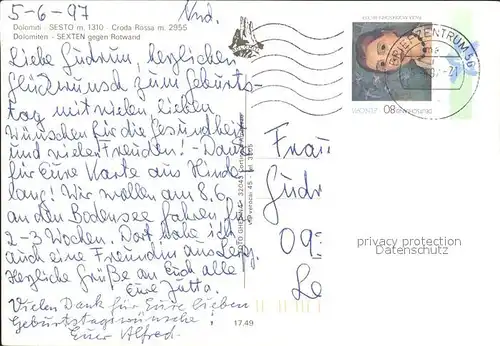 5-6-97
Dolomiti - SESTO m. 1310 - Croda Rossa m. 2955
Dolomiten - SEXTEN gegen Rotwand
Liebe Gudrun, herzlichen
Glückwunsch zum Geburts-
tag mit vielen, lieben
Wünschen für die Gesundheit
und viel Freuden! Dank
für Eure Karte aus Hinde
lang! Wir wollen am 8.6.
an den Bodensee fahren für
2-3 Wochen. Dort habe ich
auch eine Freundin aus
Herzliche Grüße an Euch alle
Eure Jutta.
Vielen Dank für Eure lieben
Geburtstagswünsche!
Euer Alfred.
17.49
BRIEFZENTRUM
80
Frau
Gudr
09
Le
privacy protection
Datenschutz